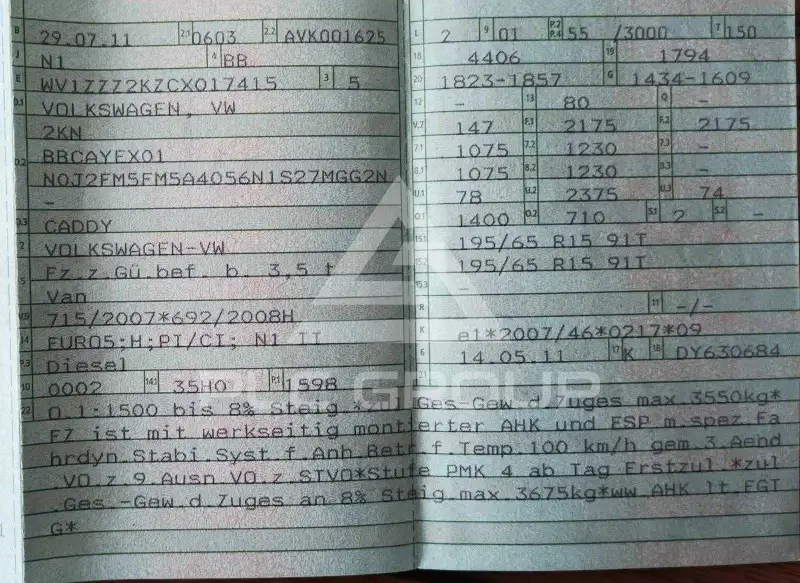 B 29.07.11 2.1 0603 2.2 AVK001625
J N1 4 BB
E WV1ZZZ2KZCX017415 3 5
D.1 VOLKSWAGEN, VW
2KN
D.2 BBCAYEX01
N0J2FM5FM5A4056N1S27MGG2N
-
D.3 CADDY
2 VOLKSWAGEN-VW
5 Fz.z.Gü.bef. b. 3,5 t
Van
V.9 715/2007*692/2008H
14 EURO5;H;PI/CI; N1 II
P.3 Diesel
10 0002 14.1 35H0 P.1 1598
22 O.1:1500 bis 8% Steig.*zul.Ges-Gew.d.Zuges max.3550kg*
FZ ist mit werkseitig montierter AHK und ESP m.spez.Fa
hrdyn.Stabi.Syst.f.Anh.Betr.f.Temp.100 km/h gem.3.Aend
.VO.z.9.Ausn.VO.z.STVO*Stufe PMK 4 ab Tag Erstzul.*zul
.Ges.-Gew.d.Zuges an 8% Steig.max.3675kg*ww.AHK lt.EGT
G*
L 2 9 01 P.2 P.4 55 /3000 T 150
18 4406 19 1794
20 1823-1857 G 1434-1609
12 - 13 80 Q -
V.7 147 F.1 2175 F.2 2175
7.1 1075 7.2 1230 7.3 -
8.1 1075 8.2 1230 8.3 -
U.1 78 U.2 2375 U.3 74
O.1 1400 O.2 710 S.1 2 S.2 -
15.1 195/65 R15 91T
15.2 195/65 R15 91T
15.3 -
R 11 -/-
K e1*2007/46*0217*09
6 14.05.11 17 K 16 DY630684
21
AUC GROUP